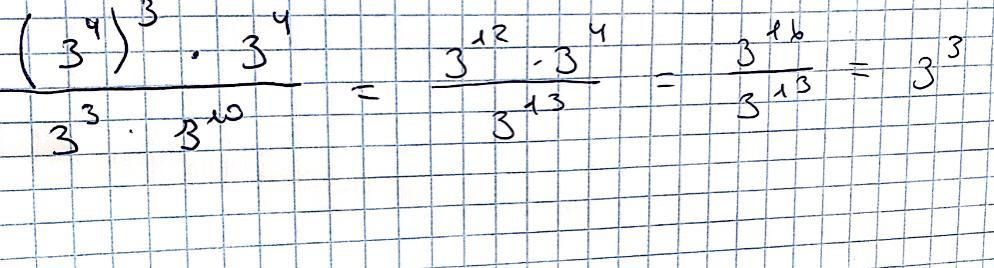 (3⁴)³ · 3⁴ / 3³ · 3¹⁰ = 3¹² · 3⁴ / 3¹³ = 3¹⁶ / 3¹³ = 3³